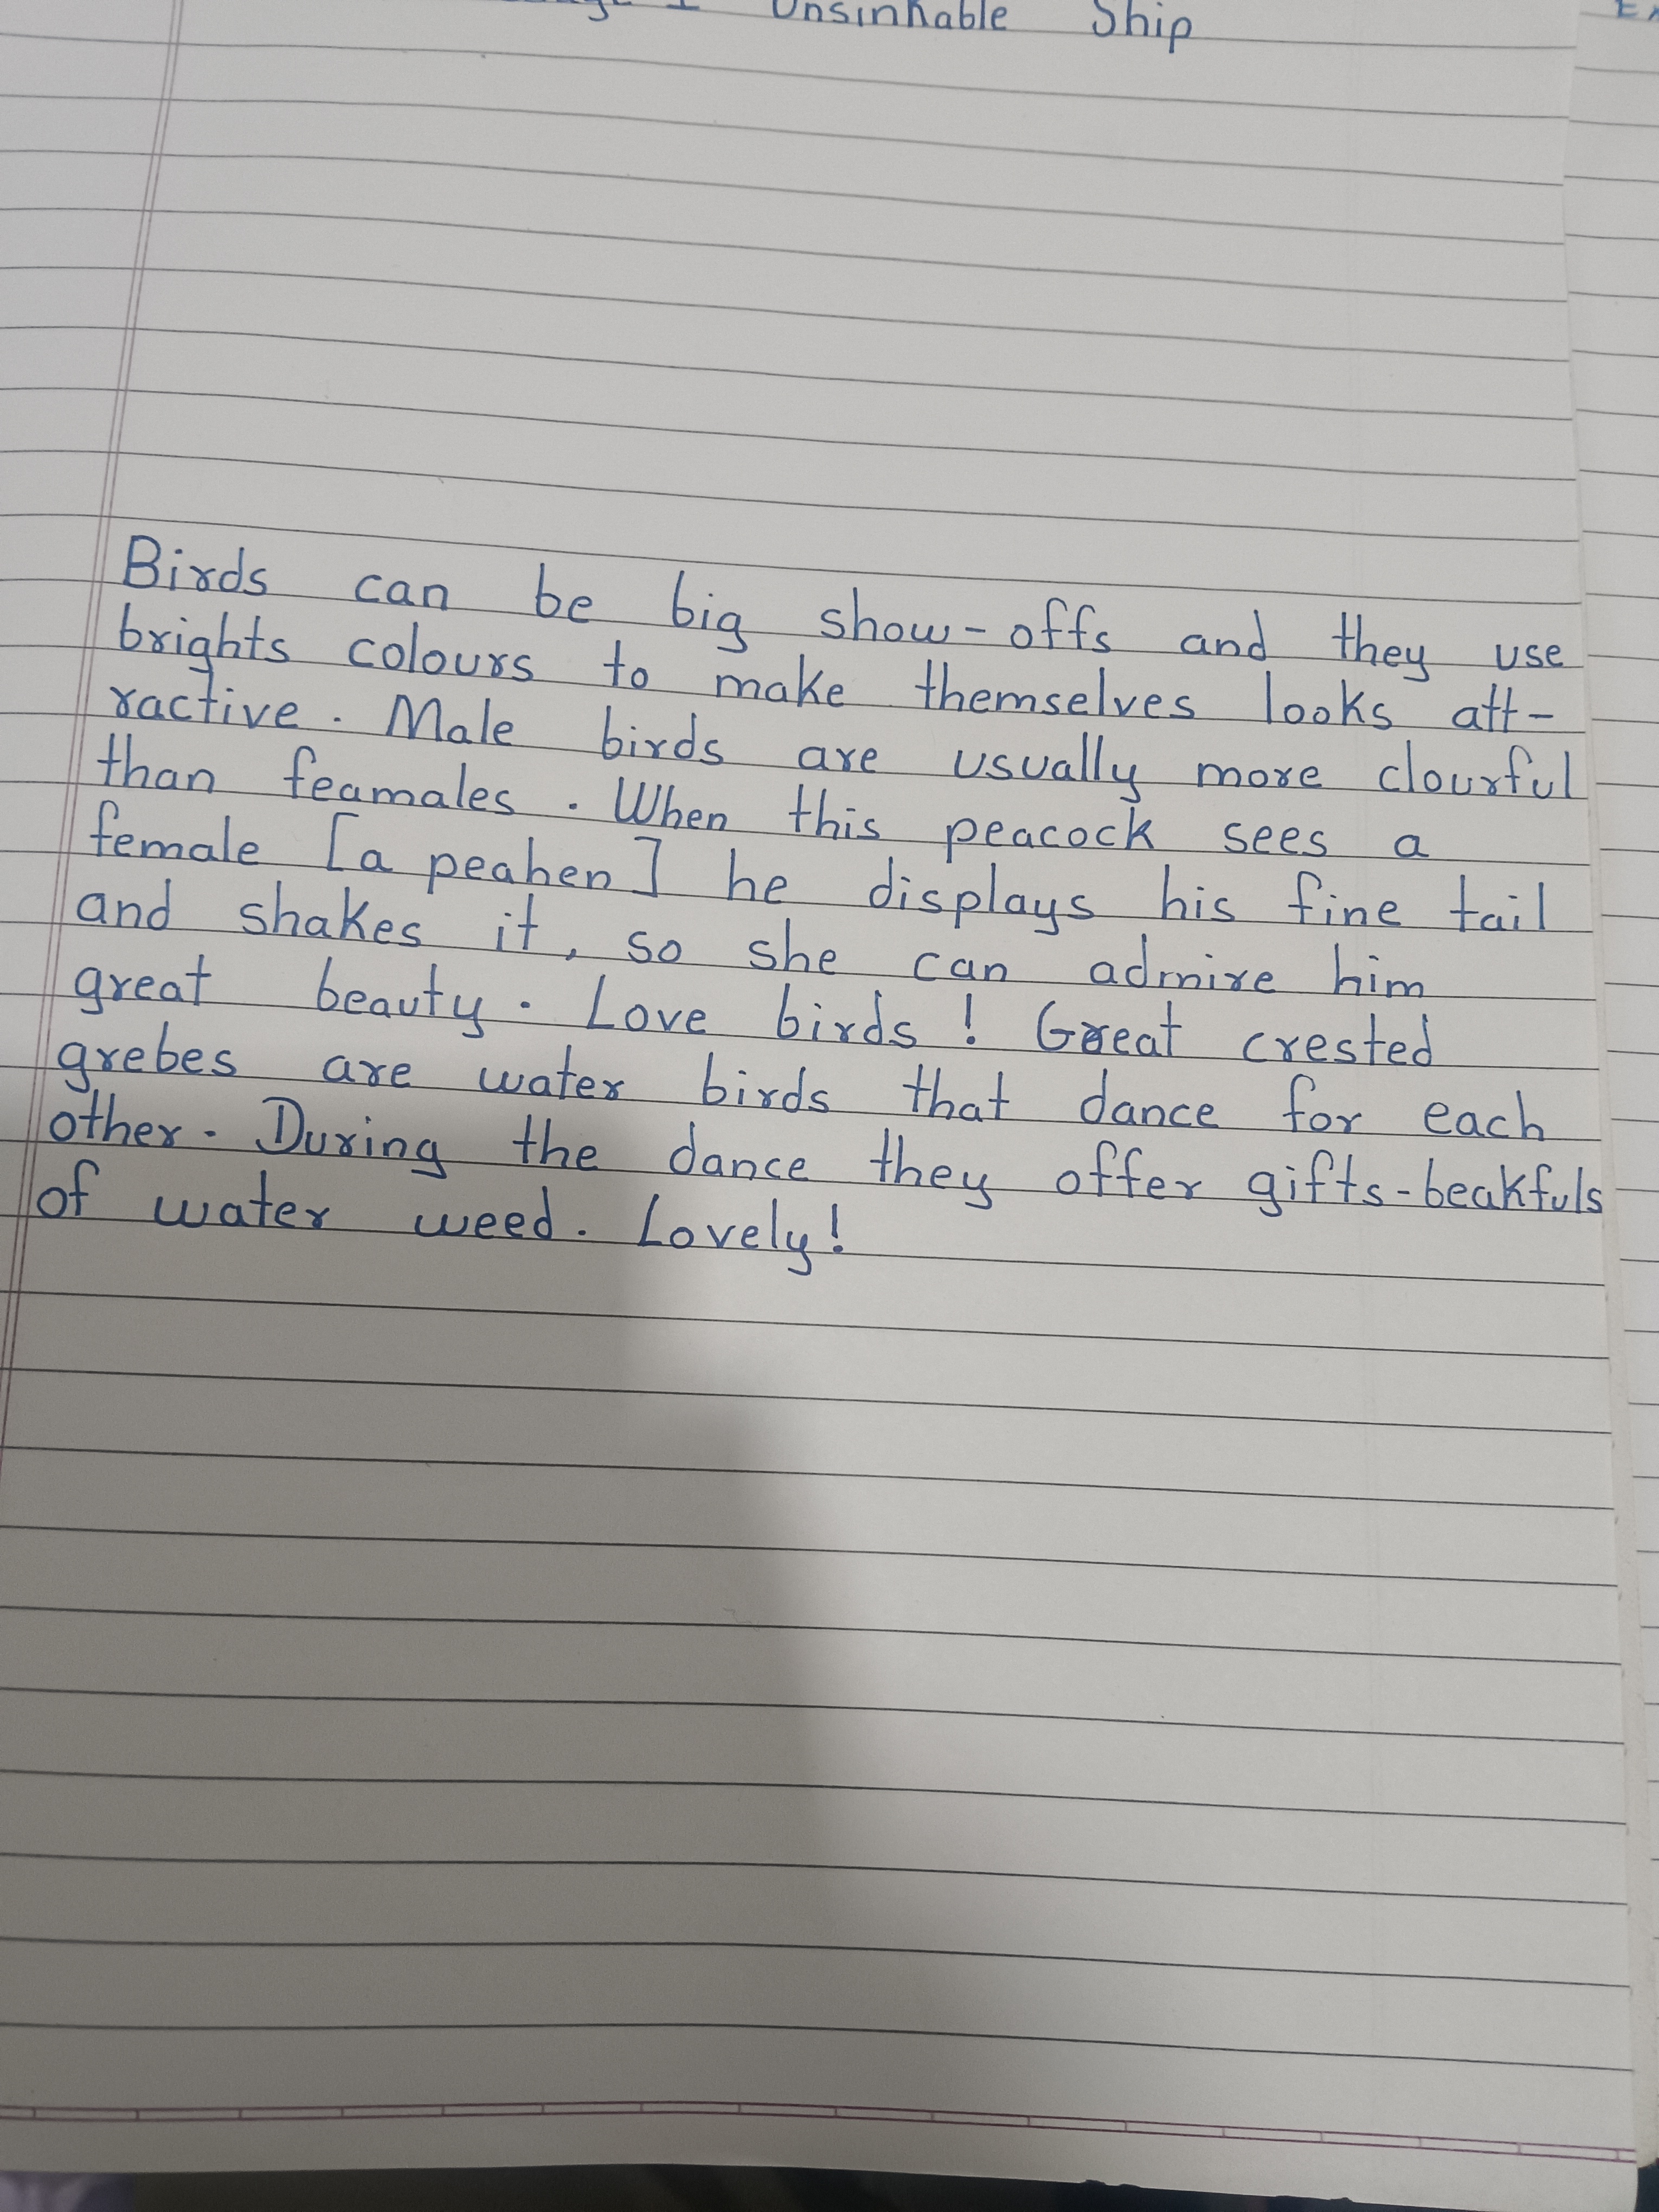 Unsinkable Ship
Birds can be big show-offs and they use
brights colours to make themselves looks att-
ractive. Male birds are usually more clourful
than feamales. When this peacock sees a
female [a peahen] he displays his fine tail
and shakes it, so she can admire him
great beauty. Love birds! Great crested
grebes are water birds that dance for each
other. During the dance they offer gifts-beakfuls
of water weed. Lovely!